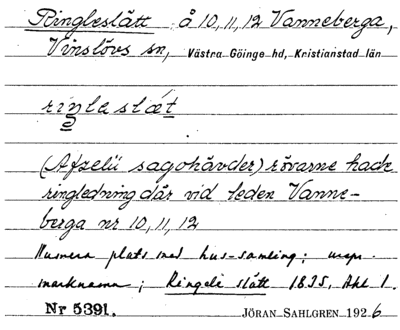 Ringleslätt å 10, 11, 12 Vanneberga,
Vinslövs sn, Västra Göinge hd, Kristianstad län
riŋləslæt
(Afzelii sagohävder) rövarne hade
ringledning där vid leden Vanne-
berga nr 10, 11, 12
Numera plats med hus-samling; urspr.
marknamn; Ringele slätt 1835, Akt 1.
Nr 5391. JÖRAN SAHLGREN 1926